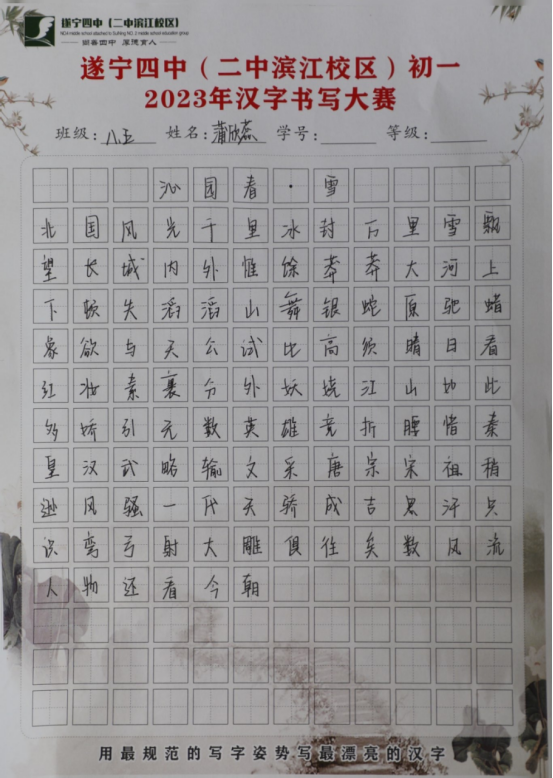 遂宁四中(二中滨江校区)
NO.4 middle school attached to SuiNing NO. 2 middle school education group
崇善四中 厚德育人
遂宁四中(二中滨江校区)初一
2023年汉字书写大赛
班级:八.五 姓名:蒲欣燕 学号: 等级:
沁园春·雪
北国风光千里冰封万里雪飘
望长城内外惟馀莽莽大河上
下顿失滔滔山舞银蛇原驰蜡
象欲与天公试比高须晴日看
红妆素裹分外妖娆江山如此
多娇引无数英雄竞折腰惜秦
皇汉武略输文采唐宗宋祖稍
逊风骚一代天骄成吉思汗只
识弯弓射大雕俱往矣数风流
人物还看今朝
用最规范的写字姿势写最漂亮的汉字